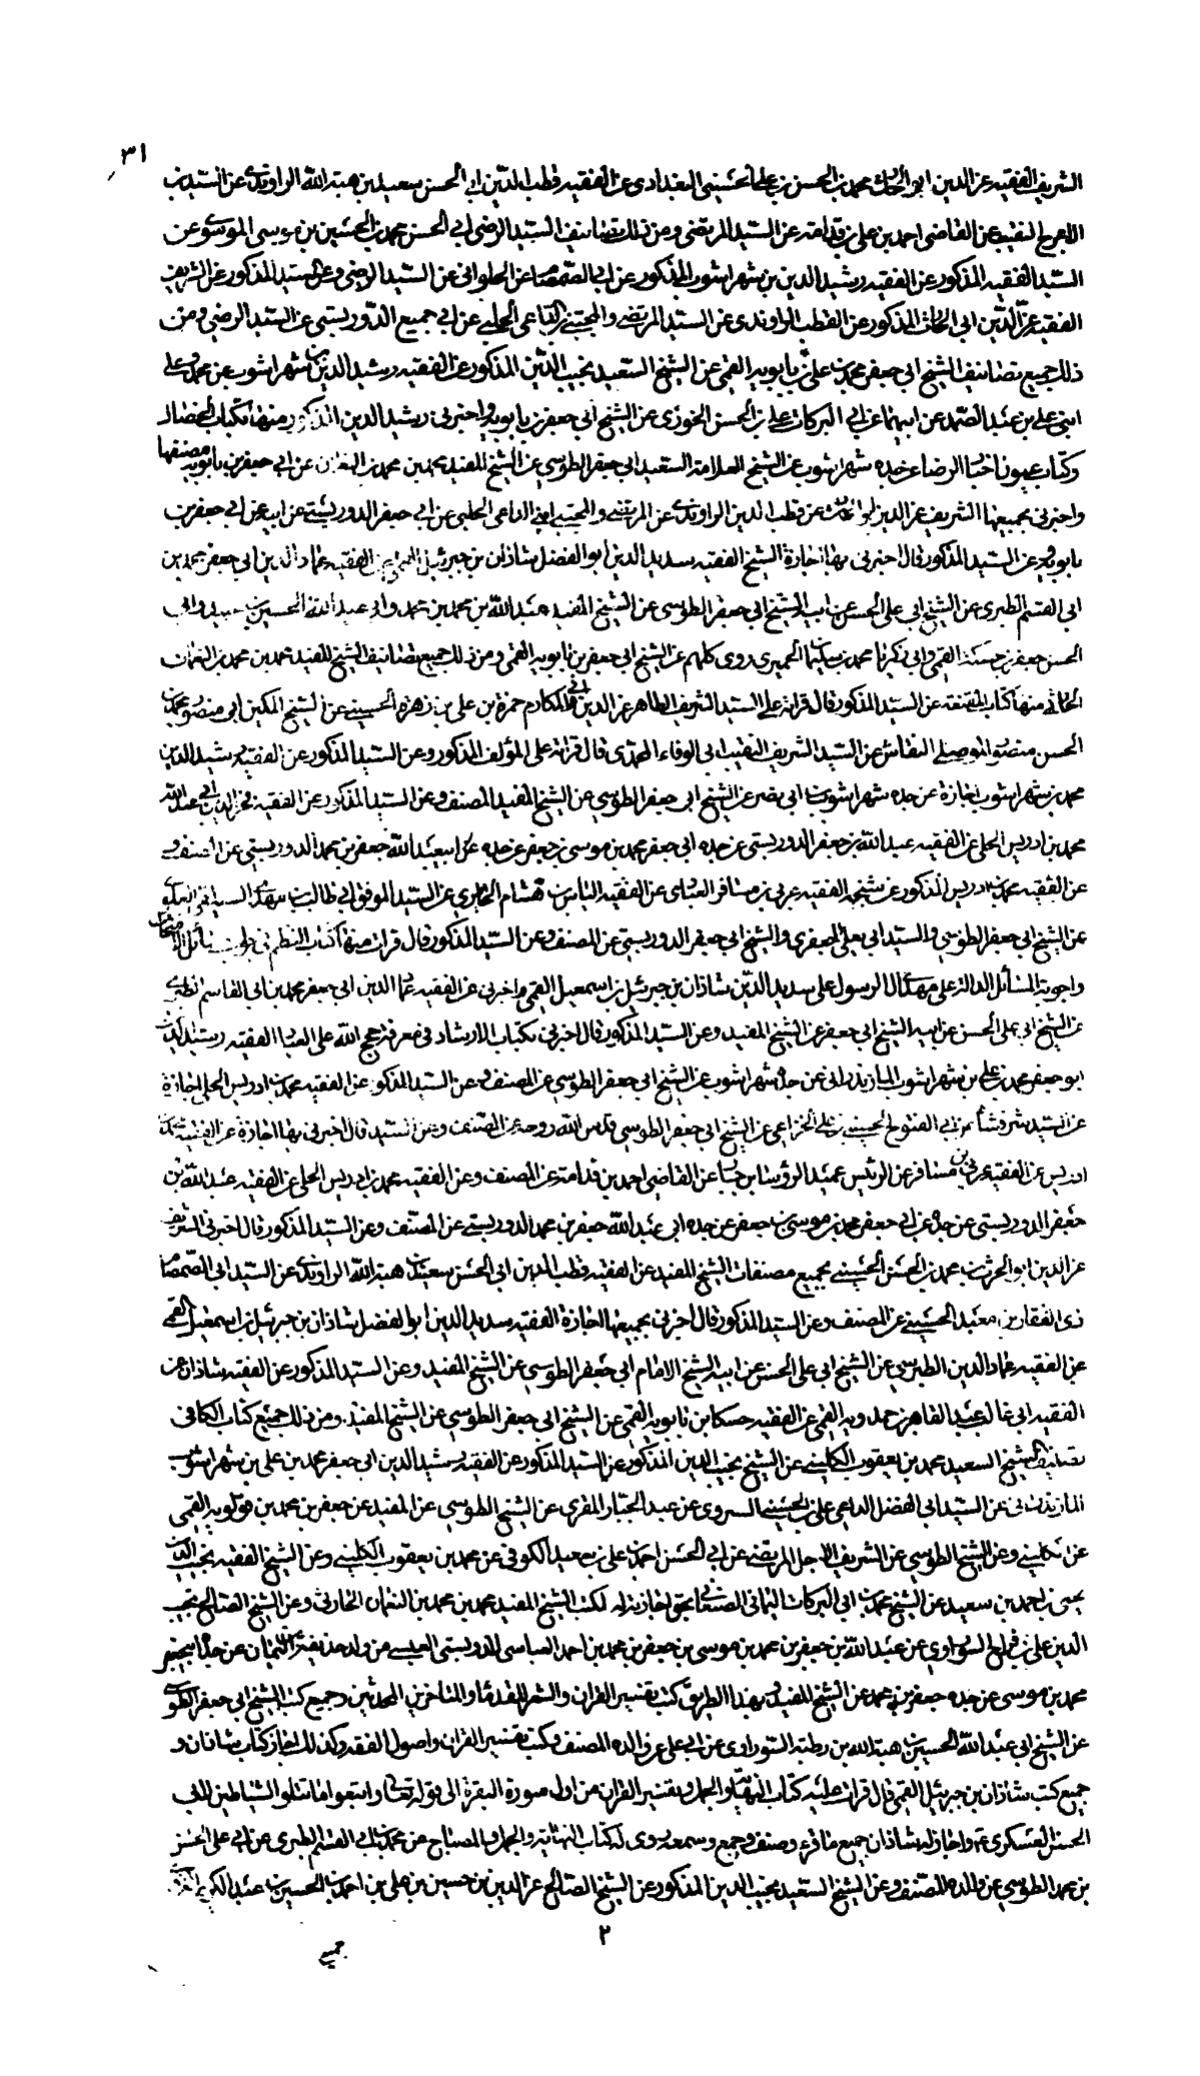 ٣١
الشريف الفقيه عز الدين ابو الحارث محمد بن الحسن بن علي الحسيني البغدادي عن الفقيه قطب الدين ابي الحسن سعيد بن هبة الله الراوندي عن السيد بن
الاعرج النقيب عن القاضي احمد بن علي بن قدامة عن السيد المرتضى ومن ذلك تصانيف السيد الرضي ابي الحسن محمد بن الحسين بن موسى الموسوي عن
السيد الفقيه المذكور عن الفقيه رشيد الدين بن شهراشوب المذكور عن ابي الصمصام عن الحلواني عن السيد الرضي وعن السيد المذكور عن الشريف
الفقيه عز الدين ابي الحارث المذكور عن القطب الراوندي عن السيد المرتضى والمجتبى ابني الداعي الحلبي عن ابي جميع الدوريستي عن السيد الرضي ومن
ذلك جميع تصانيف الشيخ ابي جعفر محمد بن علي بن بابويه القمي عن الشيخ السعيد نجيب الدين المذكور عن الفقيه رشيد الدين بن شهراشوب عن محمد وعلي
ابني علي بن عبد الصمد عن ابيهما عن ابي البركات علي بن الحسن الخوزي عن الشيخ ابي جعفر بن بابويه واخبرني رشيد الدين المذكور منها بكتاب الخصال
وكتاب عيون اخبار الرضا عن جده شهراشوب عن الشيخ العلامة السعيد ابي جعفر الطوسي عن الشيخ المفيد محمد بن محمد بن النعمان عن ابي جعفر بن بابويه مصنفها
واخبرني بجميعها الشريف عز الدين ابو الحارث عن قطب الدين الراوندي عن المرتضى والمجتبى ابني الداعي الحلبي عن ابي جعفر الدوريستي عن ابيه عن ابي جعفر بن
بابويه وعن السيد المذكور قال اخبرني بها اجازة الشيخ الفقيه سديد الدين ابو الفضل شاذان بن جبرئيل القمي عن الفقيه عماد الدين ابي جعفر محمد بن
ابي القسم الطبري عن الشيخ ابي علي الحسن عن ابيه الشيخ ابي جعفر الطوسي عن الشيخ المفيد عبد الله بن محمد بن محمد وابي عبد الله الحسين بن عبيد وابي
الحسن جعفر بن حسكة القمي وابي زكريا محمد بن سليمان الحميري روى كلهم عن الشيخ ابي جعفر بن بابويه القمي ومن ذلك جميع تصانيف الشيخ المفيد محمد بن محمد بن النعمان
الحارثي منها كتاب المقنعة عن السيد المذكور قال قراته على السيد الشريف الطاهر عز الدين ابي المكارم حمزة بن علي بن زهرة الحسيني عن الشيخ المكين ابي منصور محمد بن
الحسن بن منصور الموصلي النقاش عن السيد الشريف النقيب ابي الوفاء المحمدي قال قراته على المؤلف المذكور وعن السيد المذكور عن الفقيه رشيد الدين
محمد بن شهراشوب اجازة عن جده شهراشوب عن ابي نصر عن الشيخ ابي جعفر الطوسي عن الشيخ المفيد المصنف وعن السيد المذكور عن الفقيه فخر الدين ابي عبد الله
محمد بن ادريس الحلي عن الفقيه عبد الله بن جعفر الدوريستي عن جده ابي جعفر محمد بن موسى بن جعفر عن جده عن ابي عبد الله جعفر بن محمد الدوريستي عن المصنف و
عن الفقيه محمد بن ادريس المذكور عن شيخه الفقيه عربي بن مسافر العبادي عن الفقيه الياس بن هشام الحائري عن السيد الموفق ابي طالب بن مهدي السيلقي العلوي
عن الشيخ ابي جعفر الطوسي والسيد ابي يعلى الجعفري والشيخ ابي جعفر الدوريستي عن المصنف وعن السيد المذكور قال قرات منها كتاب النظم في جواب مسائل الامتحان
واجوبة المسائل الدالة على مهدي ال الرسول على سديد الدين شاذان بن جبرئيل بن اسمعيل القمي واخبرني عن الفقيه عماد الدين ابي جعفر محمد بن ابي القاسم الطبري
عن الشيخ ابي علي الحسن عن ابيه الشيخ ابي جعفر عن الشيخ المفيد وعن السيد المذكور قال اخبرني بكتاب الارشاد في معرفة حجج الله على العباد الفقيه رشيد الدين
ابو جعفر محمد بن علي بن شهراشوب المازندراني عن جده شهراشوب عن الشيخ ابي جعفر الطوسي عن المصنف وعن السيد المذكور عن الفقيه محمد بن ادريس الحلي اجازة
عن السيد شرفشاه عن ابي الفتوح الحسين بن علي الخزاعي عن الشيخ ابي جعفر الطوسي قدس الله روحه عن المصنف وعن السيد قال اخبرني بها اجازة عن الفقيه محمد بن
ادريس عن الفقيه عربي بن مسافر عن الرئيس عميد الرؤسا بن حيا عن القاضي احمد بن قدامة عن المصنف وعن الفقيه محمد بن ادريس الحلي عن الفقيه عبد الله بن
جعفر الدوريستي عن جده عن ابي جعفر محمد بن موسى بن جعفر عن جده ابي عبد الله جعفر بن محمد الدوريستي عن المصنف وعن السيد المذكور قال اخبرني الشريف
عز الدين ابو الحرث محمد بن الحسن الحسيني بجميع مصنفات الشيخ المفيد عن الفقيه قطب الدين ابي الحسن سعيد بن هبة الله الراوندي عن السيد ابي الصمصام
ذي الفقار بن معبد الحسيني عن المصنف وعن السيد المذكور قال اخبرني بجميعها اجازة الفقيه سديد الدين ابو الفضل شاذان بن جبرئيل بن اسمعيل القمي
عن الفقيه عماد الدين الطبرسي عن الشيخ ابي علي الحسن عن ابيه الشيخ الامام ابي جعفر الطوسي عن الشيخ المفيد وعن السيد المذكور عن الفقيه شاذان عن
الفقيه ابي غالب عبد القاهر بن حمدويه القمي عن الفقيه حسكا بن بابويه القمي عن الشيخ ابي جعفر الطوسي عن الشيخ المفيد ومن ذلك جميع كتاب الكافي
تصانيف الشيخ السعيد محمد بن يعقوب الكليني عن الشيخ نجيب الدين المذكور عن السيد المذكور عن الفقيه رشيد الدين ابي جعفر محمد بن علي بن شهراشوب
المازندراني عن السيد ابي الفضل الداعي علي بن الحسيني السروي عن عبد الجبار المقري عن الشيخ الطوسي عن المفيد عن جعفر بن محمد بن قولويه القمي
عن الكليني وعن الشيخ الطوسي عن الشريف الاجل المرتضى عن ابي الحسن احمد بن علي بن سعيد الكوفي عن محمد بن يعقوب الكليني وعن الشيخ الفقيه نجيب الدين
يحيى بن احمد بن سعيد عن الشيخ محمد بن ابي البركات اليماني الصنعاني بحق اجازته له لكتب الشيخ المفيد محمد بن محمد بن النعمان الحارثي وعن الشيخ الصالح نجيب
الدين علي بن فرج السوراوي عن عبد الله بن جعفر بن محمد بن موسى بن جعفر بن محمد بن احمد العباسي الدوريستي العبسي من ولد حذيفة بن اليمان عن جده ابي جعفر
محمد بن موسى عن جده جعفر بن محمد عن الشيخ المفيد وبهذا الطريق كتب تفسير القران والشعر للقدماء والمتاخرين المحدثين وجميع كتب الشيخ ابي جعفر الطوسي
عن الشيخ ابي عبد الله الحسين بن هبة الله بن رطبة السوراوي عن ابي علي عن والده المصنف وكتب تفسير القران واصول الفقه وكذلك اجاز كتاب شاذان و
جميع كتب شاذان بن جبرئيل القمي قال قرات عليه كتاب النهاية والجمل وتفسير القران من اول سورة البقرة الى قوله تعالى واتبعوا ما تتلوا الشياطين لابي
الحسن العسكري ع واجاز له شاذان جميع ما قرء وصنف وجمع وسمعه وروى له كتاب النهاية والجمل والمصباح عن محمد بن ابي القسم الطبري عن ابي علي الحسن
بن محمد الطوسي عن والده المصنف وعن الشيخ السعيد نجيب الدين المذكور عن الشيخ الصالح عز الدين بن حسين بن علي بن احمد بن الحسين بن عبد الكريم
٢